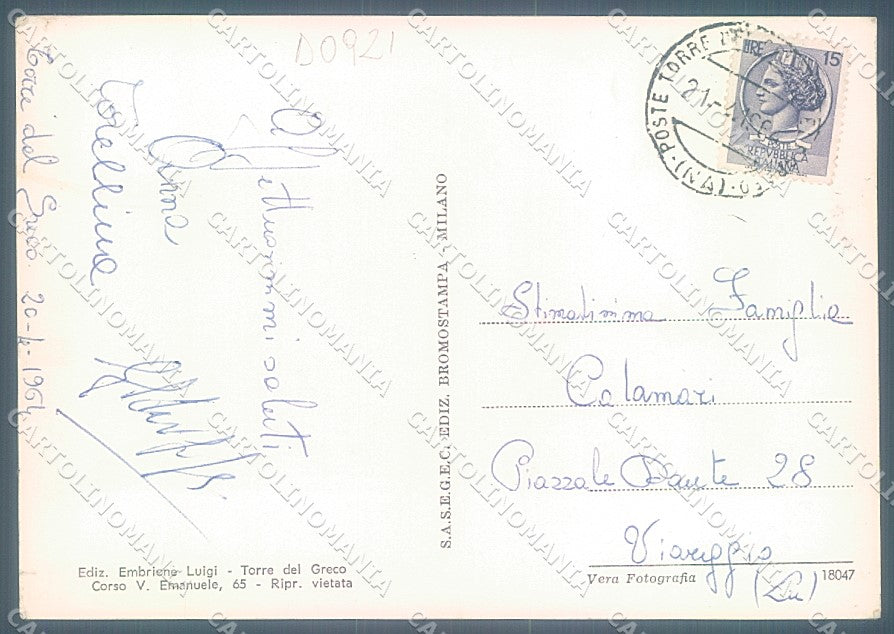 D0921
Torre del Greco 20-4-1964
Affettuosissimi saluti
Anna
Torellina
S.A.S.E.G.E.C. EDIZ. BROMOSTAMPA - MILANO
LIRE 15
POSTE
REPVBBLICA
ITALIANA
POSTE TORRE DEL
(NA)
21-
Stimatissima Famiglia
Calamari
Piazzale Dante 28
Viareggio
(Lu)
Ediz. Embrione Luigi - Torre del Greco
Corso V. Emanuele, 65 - Ripr. vietata
Vera Fotografia
18047
CARTOLINOMANIA